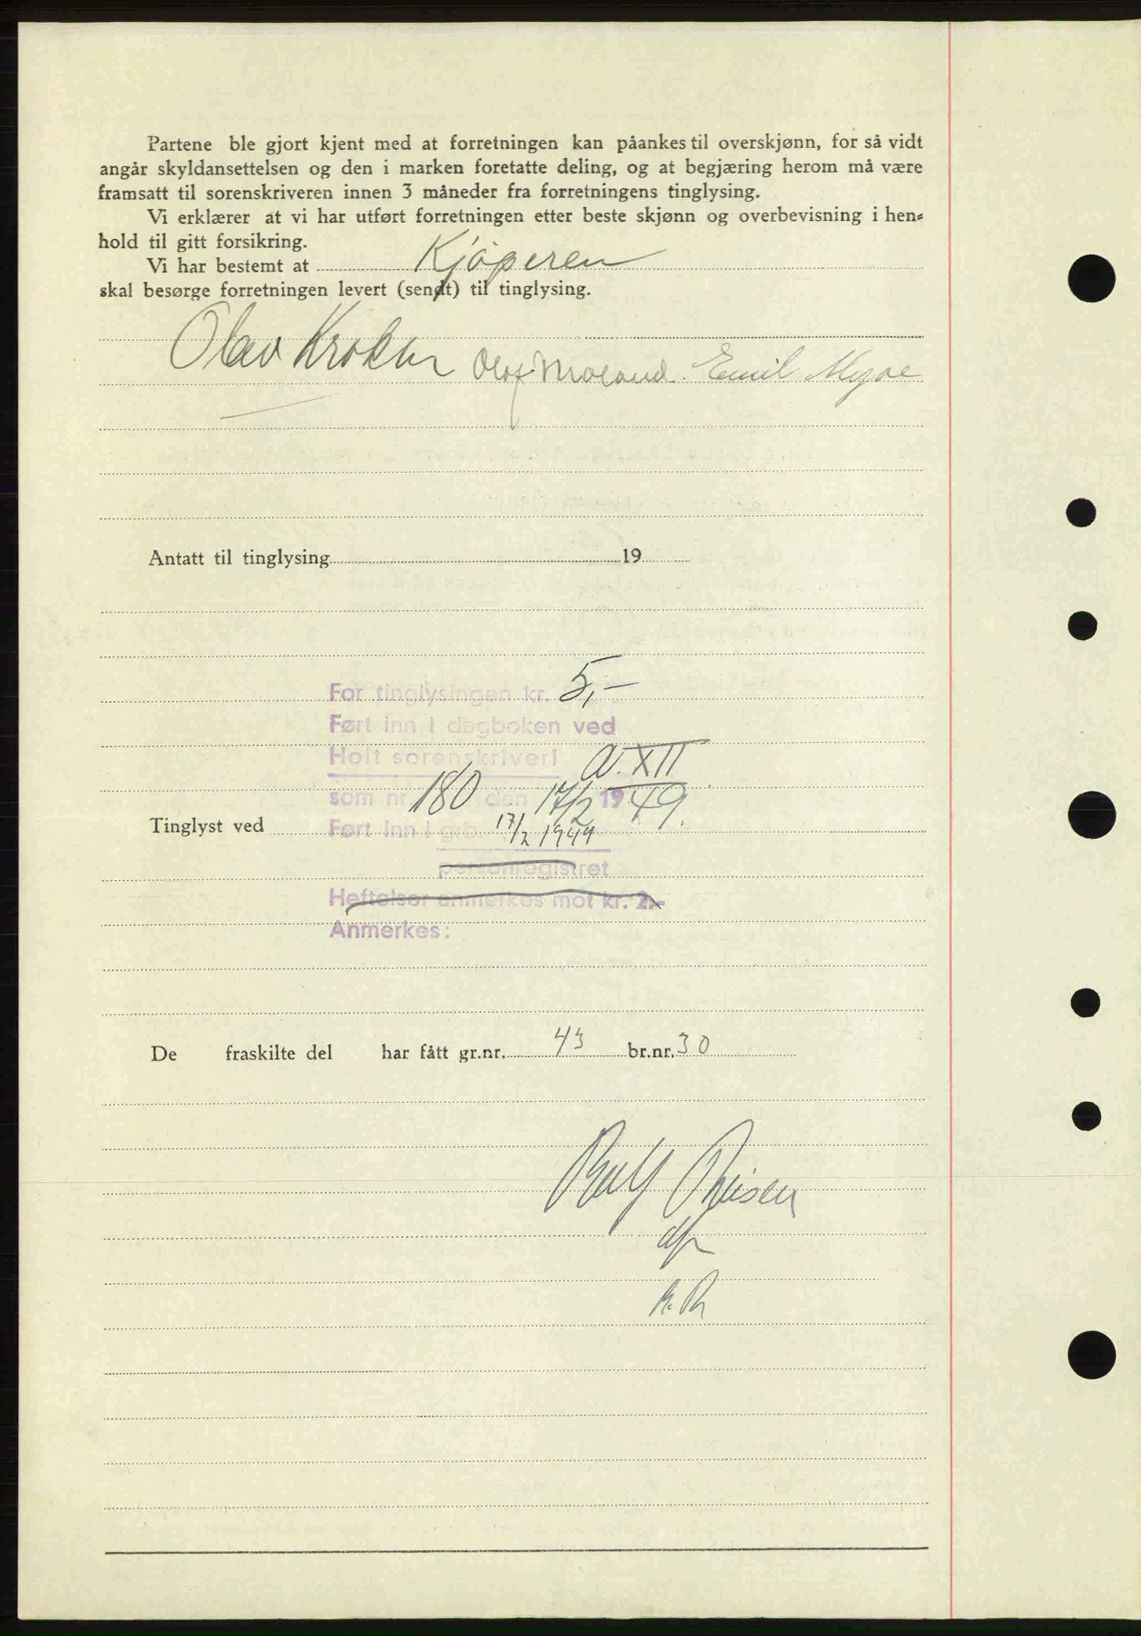 Partene ble gjort kjent med at forretningen kan påankes til overskjønn, for så vidt
angår skyldansettelsen og den i marken foretatte deling, og at begjæring herom må være
framsatt til sorenskriveren innen 3 måneder fra forretningens tinglysing.
Vi erklærer at vi har utført forretningen etter beste skjønn og overbevisning i hen-
hold til gitt forsikring.
Vi har bestemt at Kjøperen
skal besørge forretningen levert (sendt) til tinglysing.
Olav Olaf Emil
Antatt til tinglysing 19
For tinglysingen kr. 5,-
Ført inn i dagboken ved
Holt sorenskriveri a. XII
som nr. 180 den 17/2 1949.
Tinglyst ved Ført inn i g.b. 17/2 1949
personregistret
Heftelser anmerkes mot kr. 2.-
Anmerkes:
De fraskilte del har fått gr.nr. 43 br.nr. 30